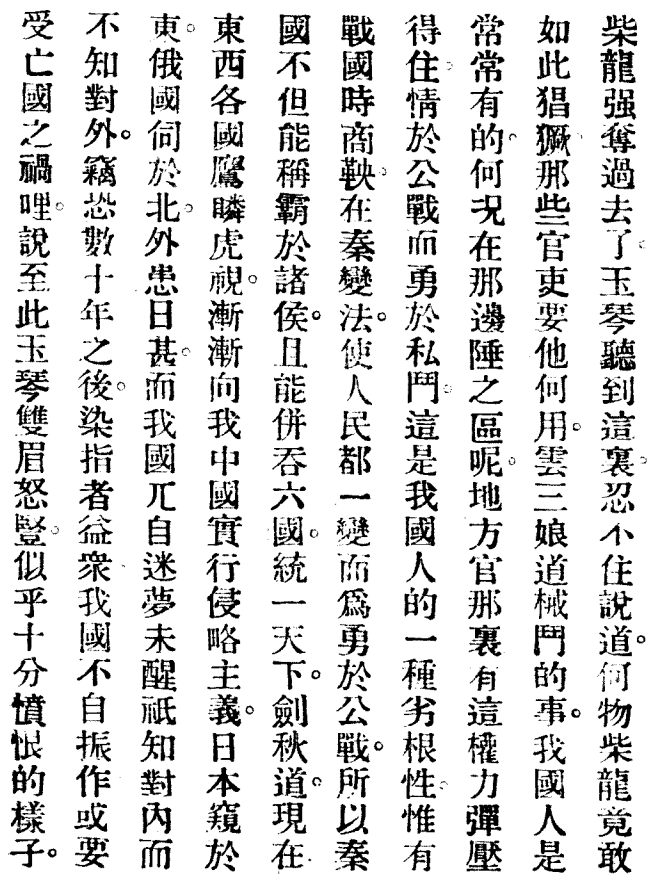 柴龍强奪過去了。玉琴聽到這裏忍不住說道。何物柴龍竟敢
如此猖獗。那些官吏要他何用。雲三娘道械鬥的事。我國人是
常常有的。何况在那邊陲之區呢。地方官那裏有這權力彈壓
得住。情於公戰而勇於私鬥。這是我國人的一種劣根性。惟有
戰國時商鞅。在秦變法。使人民都一變而爲勇於公戰。所以秦
國不但能稱霸於諸侯。且能併吞六國。統一天下。劍秋道。現在
東西各國鷹瞵虎視。漸漸向我中國實行侵略主義。日本窺於
東。俄國伺於北。外患日甚。而我國兀自迷夢未醒祇知對內而
不知對外。竊恐數十年之後。染指者益衆我國不自振作或要
受亡國之禍哩。說至此玉琴雙眉怒豎。似乎十分憤恨的樣子。